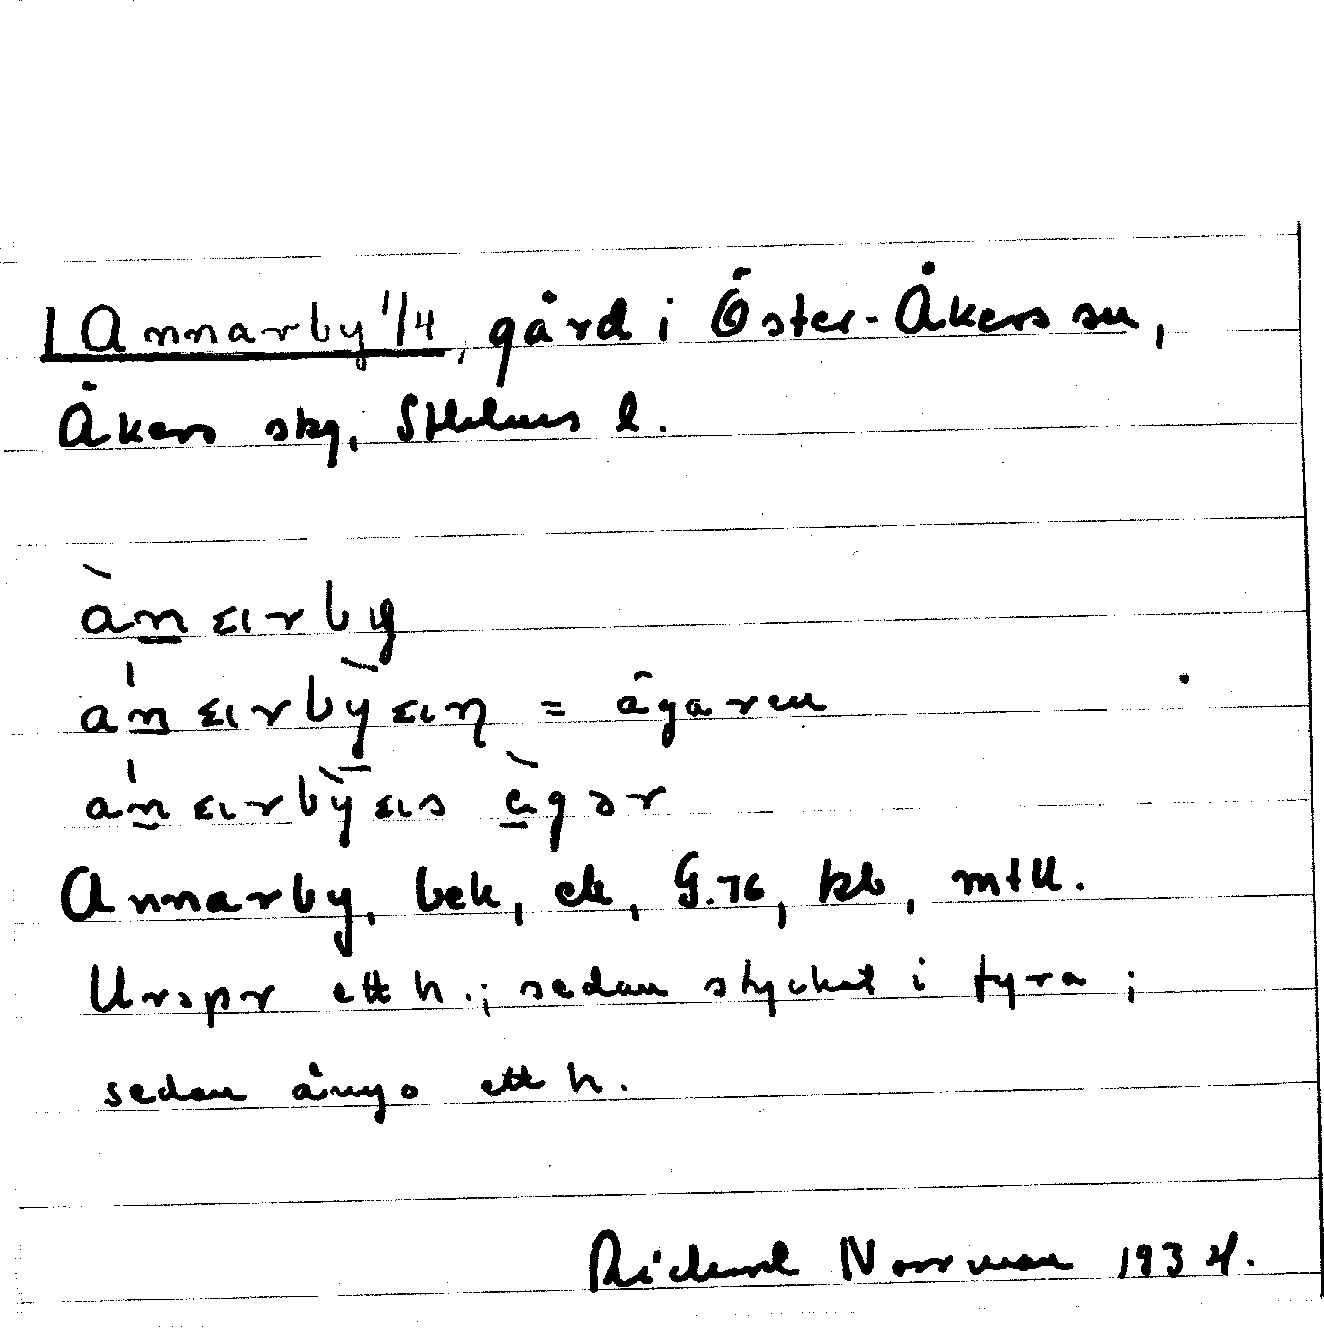 1 Annarby 1/4, gård i Öster-Åkers sn,
Åkers skg, Sthlms l.
= ägaren
Annarby, bek, ek, G.76, kb, mtl.
Urspr ett h.; sedan styckat i fyra;
sedan ånyo ett h.
Rickard Norrman 1934.